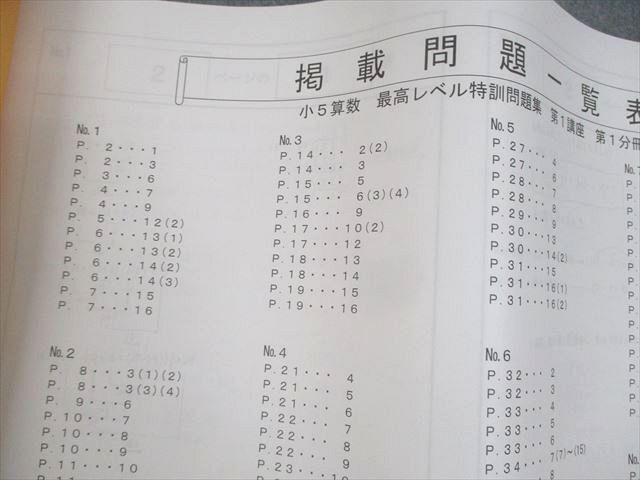 掲載問題一覧表
小5算数 最高レベル特訓問題集 第1講座 第1分冊
№1
P. 2・・・1
P. 2・・・3
P. 3・・・6
P. 4・・・7
P. 4・・・9
P. 5・・・12(2)
P. 6・・・13(1)
P. 6・・・13(2)
P. 6・・・14(2)
P. 6・・・14(3)
P. 7・・・15
P. 7・・・16
№2
P. 8・・・3(1)(2)
P. 8・・・3(3)(4)
P. 9・・・6
P.10・・・7
P.10・・・8
P.10・・・9
P.11・・・10
№3
P.14・・・2(2)
P.14・・・3
P.15・・・5
P.15・・・6(3)(4)
P.16・・・9
P.17・・・10(2)
P.17・・・12
P.18・・・13
P.18・・・14
P.19・・・15
P.19・・・16
№4
P.21・・・4
P.21・・・5
P.21・・・6
P.22・・・7
P.22・・・8
P.22・・・9
P.23・・・10
№5
P.27・・・4
P.27・・・6
P.28・・・7
P.28・・・8
P.29・・・9
P.30・・・13
P.30・・・14(2)
P.31・・・15
P.31・・・16(1)
P.31・・・16(2)
№6
P.32・・・2
P.32・・・3
P.33・・・4
P.33・・・5
P.33・・・6
P.34・・・7(7)～(15)
8